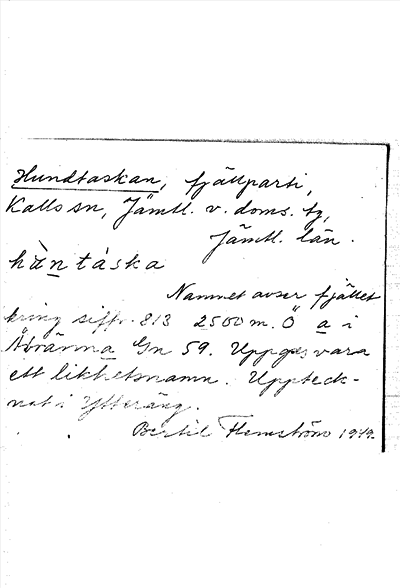 Hundtaskan, fjällparti,
Kalls sn, Jämtl. v. doms. tg,
Jämtl. län.
hàntáska
Namnet avser fjället
kring siffr. 813 2500 m. Ö a i
Gn 59. Uppges vara
ett likhetsnamn. Uppteck-
nat i Ytteräng.
Bertil Flemström 1949.